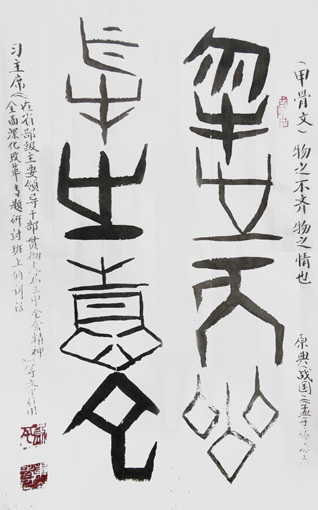 （甲骨文）物之不齐 物之情也
原典《战国·孟子·滕文公上》
物之不齐
物之情也
习主席《在省部级主要领导干部贯彻十八届三中全会精神
全面深化改革专题研讨班上的讲话